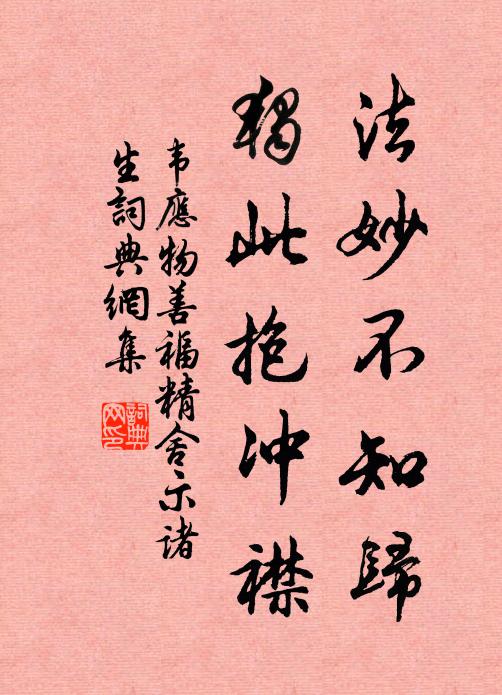 法妙不知歸
獨此抱冲襟
韦應物善福精舍示诸
生詞典網集
詞典
网印